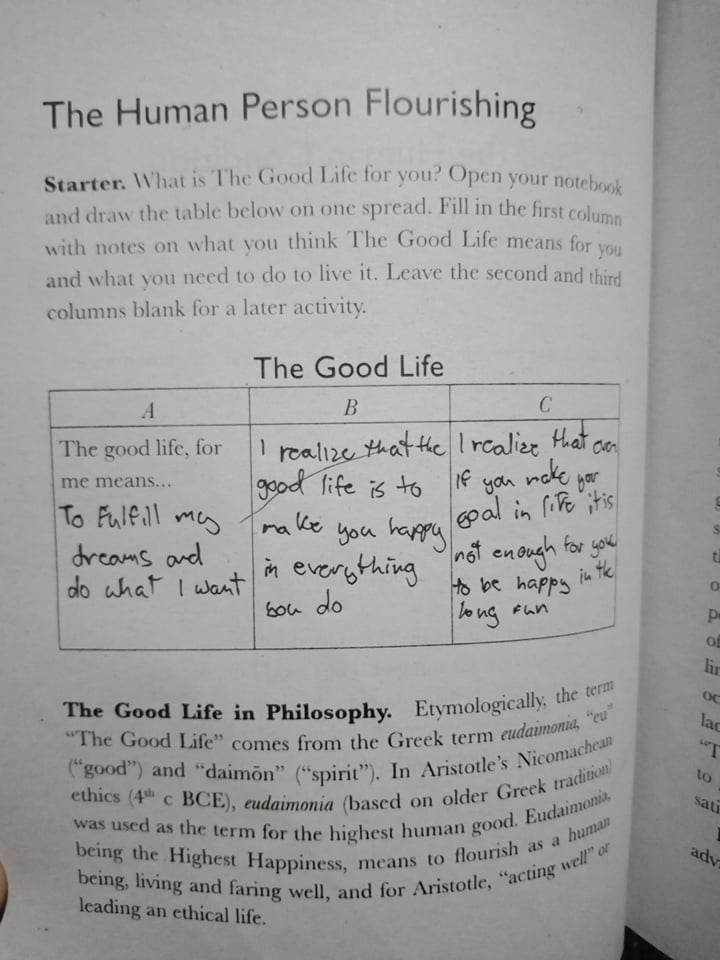 The Human Person Flourishing
Starter. What is The Good Life for you? Open your notebook
and draw the table below on one spread. Fill in the first column
with notes on what you think The Good Life means for you
and what you need to do to live it. Leave the second and third
columns blank for a later activity.
The Good Life
A
The good life, for
me means...
To Fulfill my
dreams and
do what I want
B
I realize that the
good life is to
make you happy
in everything
you do
C
I realize that even
if you make your
goal in life it is
not enough for you
to be happy in the
long run
The Good Life in Philosophy. Etymologically, the term
"The Good Life" comes from the Greek term eudaimonia, "eu"
("good") and "daimōn" ("spirit"). In Aristotle's Nicomachean
ethics (4th c BCE), eudaimonia (based on older Greek tradition)
was used as the term for the highest human good. Eudaimonia,
being the Highest Happiness, means to flourish as a human
being, living and faring well, and for Aristotle, "acting well" or
leading an ethical life.